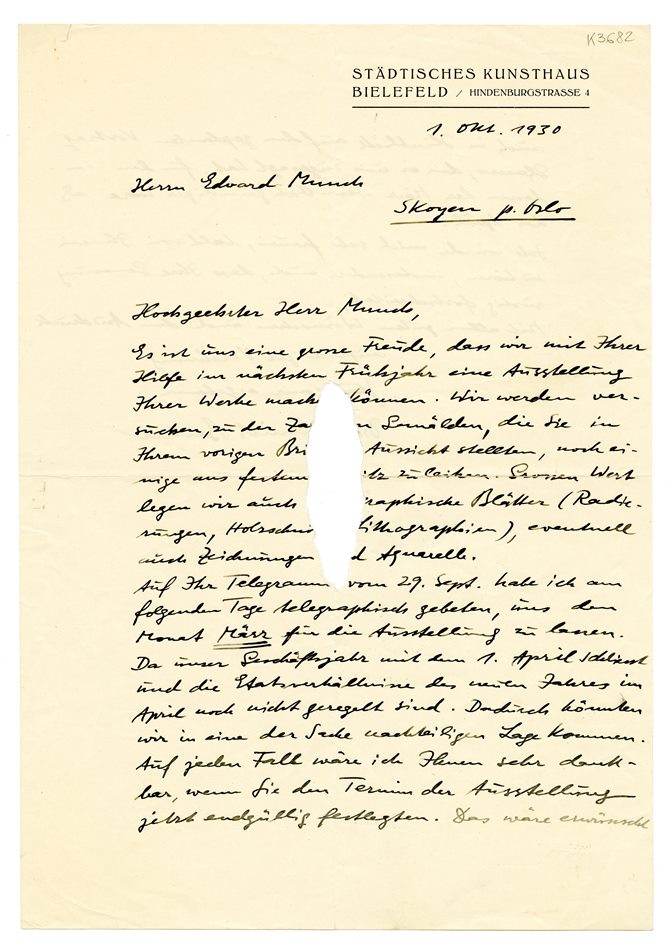 K3682
STÄDTISCHES KUNSTHAUS
BIELEFELD / HINDENBURGSTRASSE 4
1. Okt. 1930
Herrn Edvard Munch
Skoyen p. Oslo
Hochgeehrter Herr Munch,
Es ist uns eine grosse Freude, dass wir mit Ihrer
Hilfe im nächsten Frühjahr eine Ausstellung
Ihrer Werke machen können. Wir werden ver-
suchen, zu der Za n Gemälden, die Sie in
Ihrem vorigen Bri Aussicht stellten, noch ei-
nige aus festem itz zu leihen. Grossen Wert
legen wir auch raphische Blätter (Radie-
rungen, Holzschni Lithographien), eventuell
auch Zeichnungen d Aquarelle.
Auf Ihr Telegramm vom 29. Sept. habe ich am
folgenden Tage telegraphisch gebeten, uns den
Monat März für die Ausstellung zu lassen.
Da unser Geschäftsjahr mit dem 1. April schliesst
und die Etatsverhältnisse des neuen Jahres im
April noch nicht geregelt sind. Dadurch könnten
wir in eine der Sache nachteiligen Lage kommen.
Auf jeden Fall wäre ich Ihnen sehr dank-
bar, wenn Sie den Termin der Ausstellung
jetzt endgültig festlegten. Das wäre erwünscht